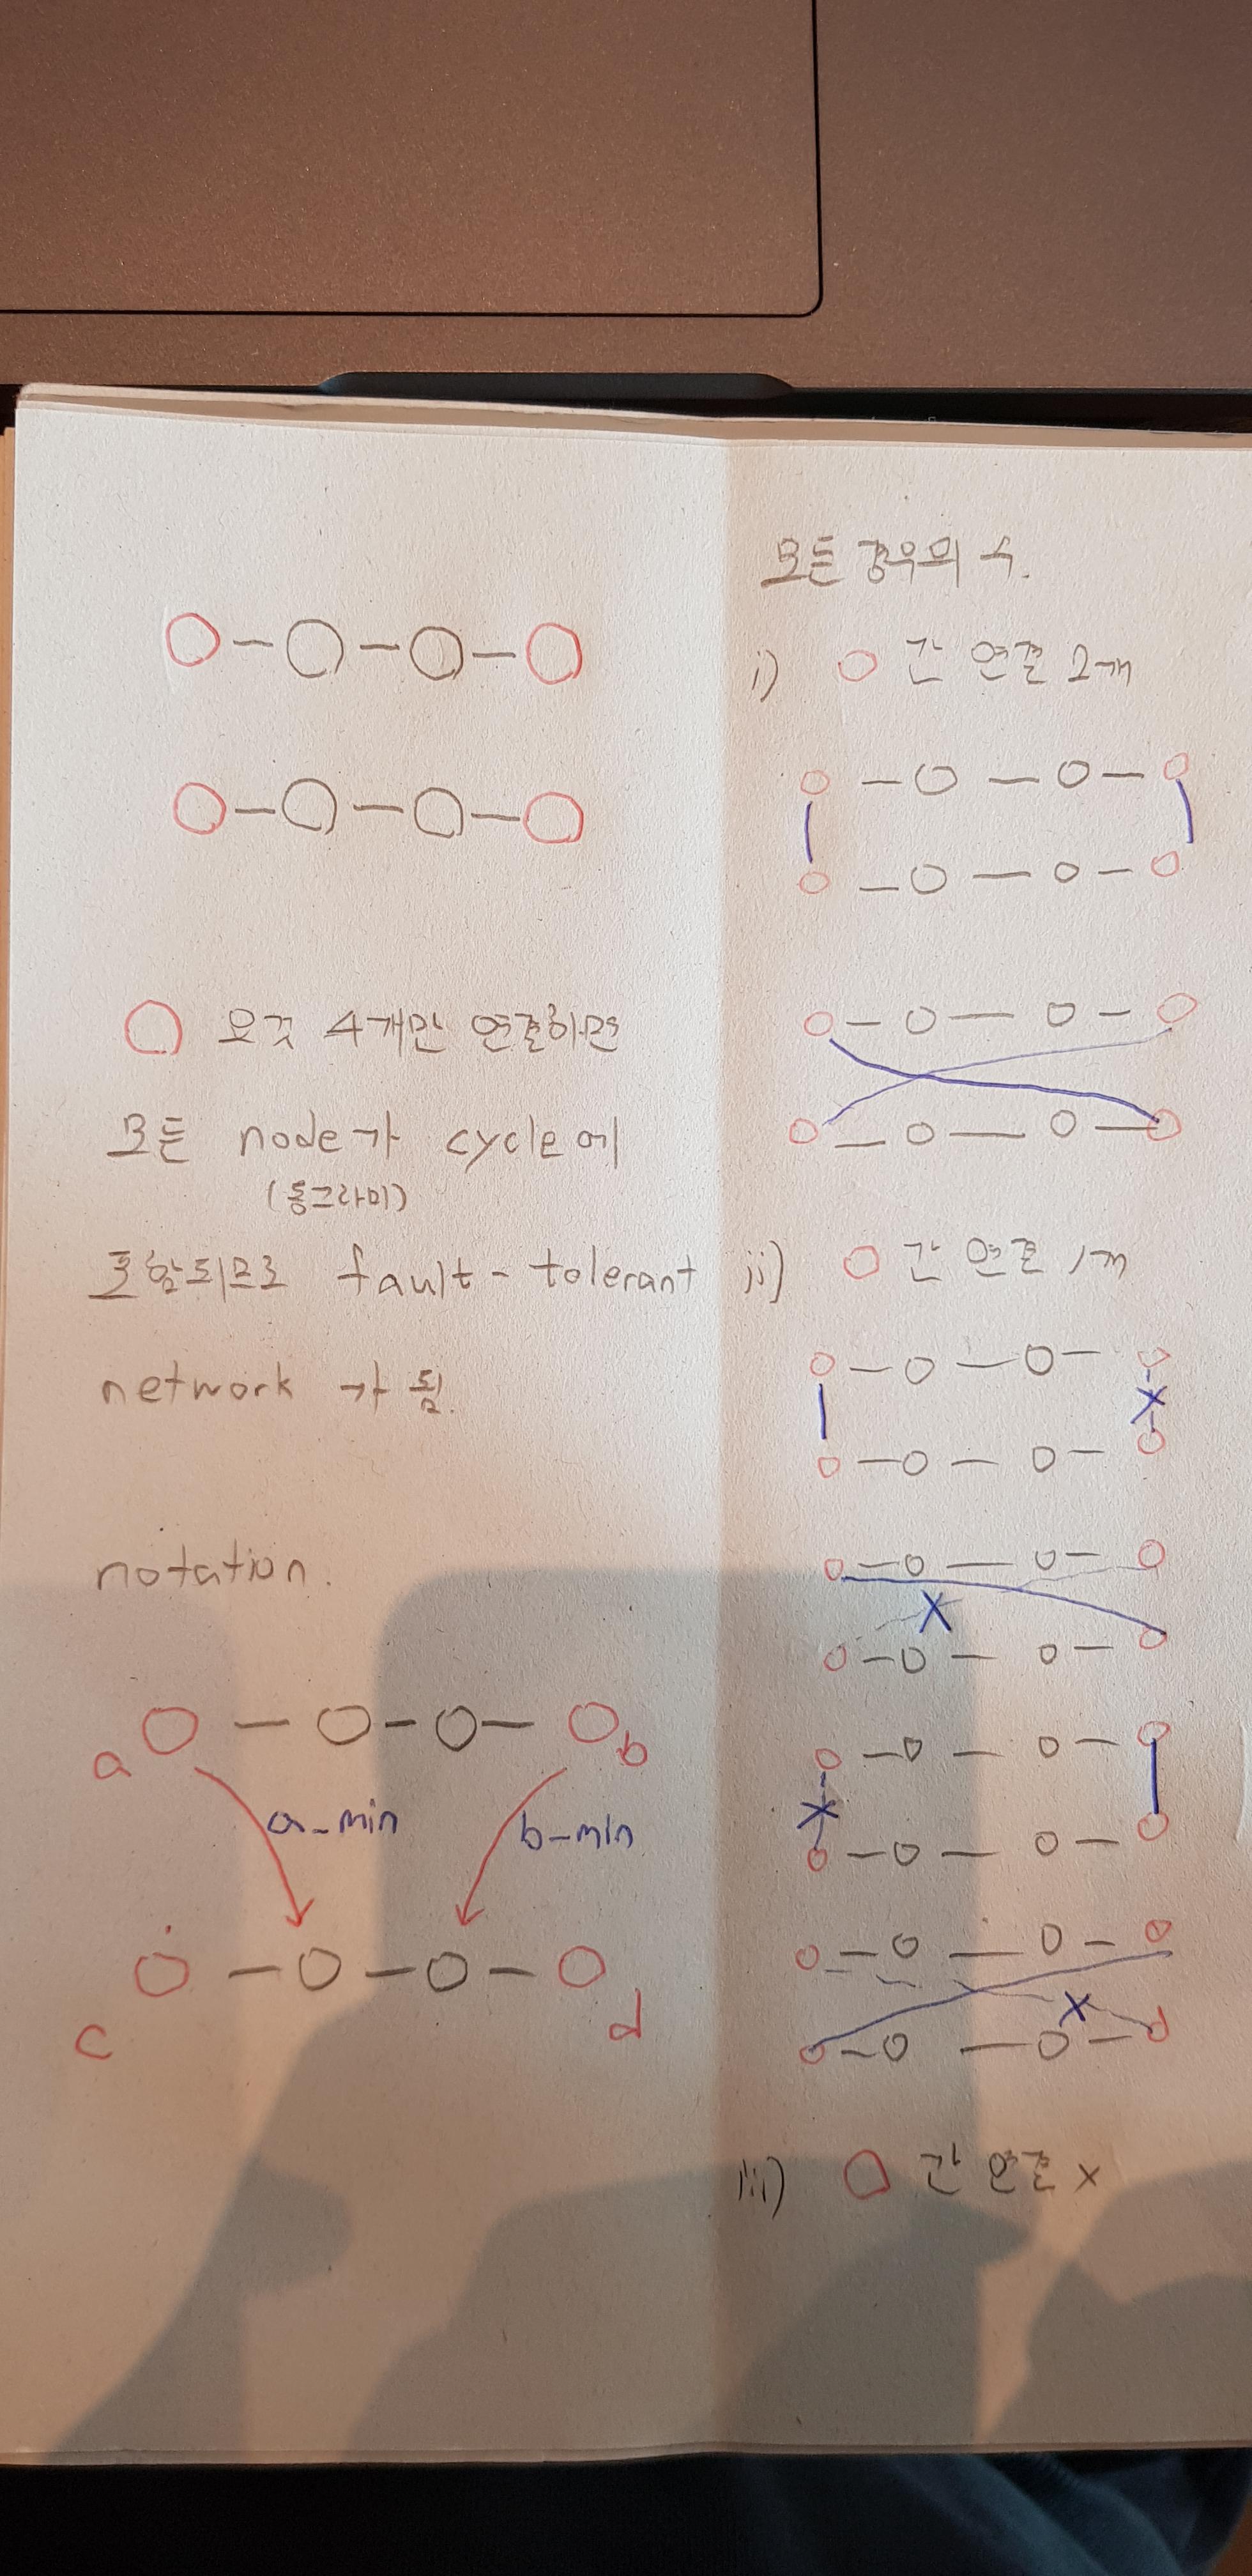 요것 4개만 연결하면
모든 node가 cycle에
(동그라미)
포함되므로 fault-tolerant
network가 됨.
notation.
a
b
a-min
b-min
c
d
모든 경우의 수.
i) 간 연결 2개
ii) 간 연결 1개
iii) 간 연결 x